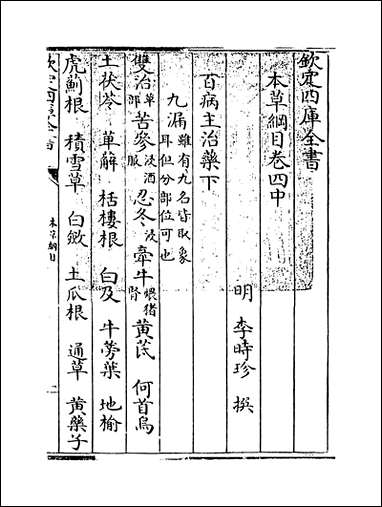 欽定四庫全書
本草綱目卷四中
明 李時珍 撰
百病主治藥下
九漏 雖有九名皆取象耳但分部位可也
雙治 草部 苦參 浸酒服 忍冬 浸 牽牛 煨猪腎 黃芪 何首烏
土茯苓 萆解 栝樓根 白及 牛蒡葉 地榆
虎薊根 積雪草 白斂 土瓜根 通草 黃藥子
本草綱目